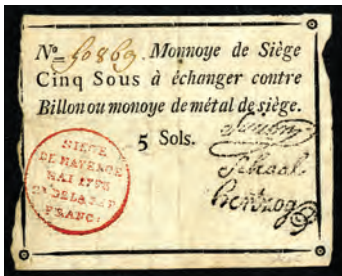 No. 50869. Monnoye de Siège
Cinq Sous à échanger contre
Billon ou monoye de métal de siège.
5 Sols.
SIEGE
DE MAYENCE
MAI 1793
2e DE LA REP
FRANC: